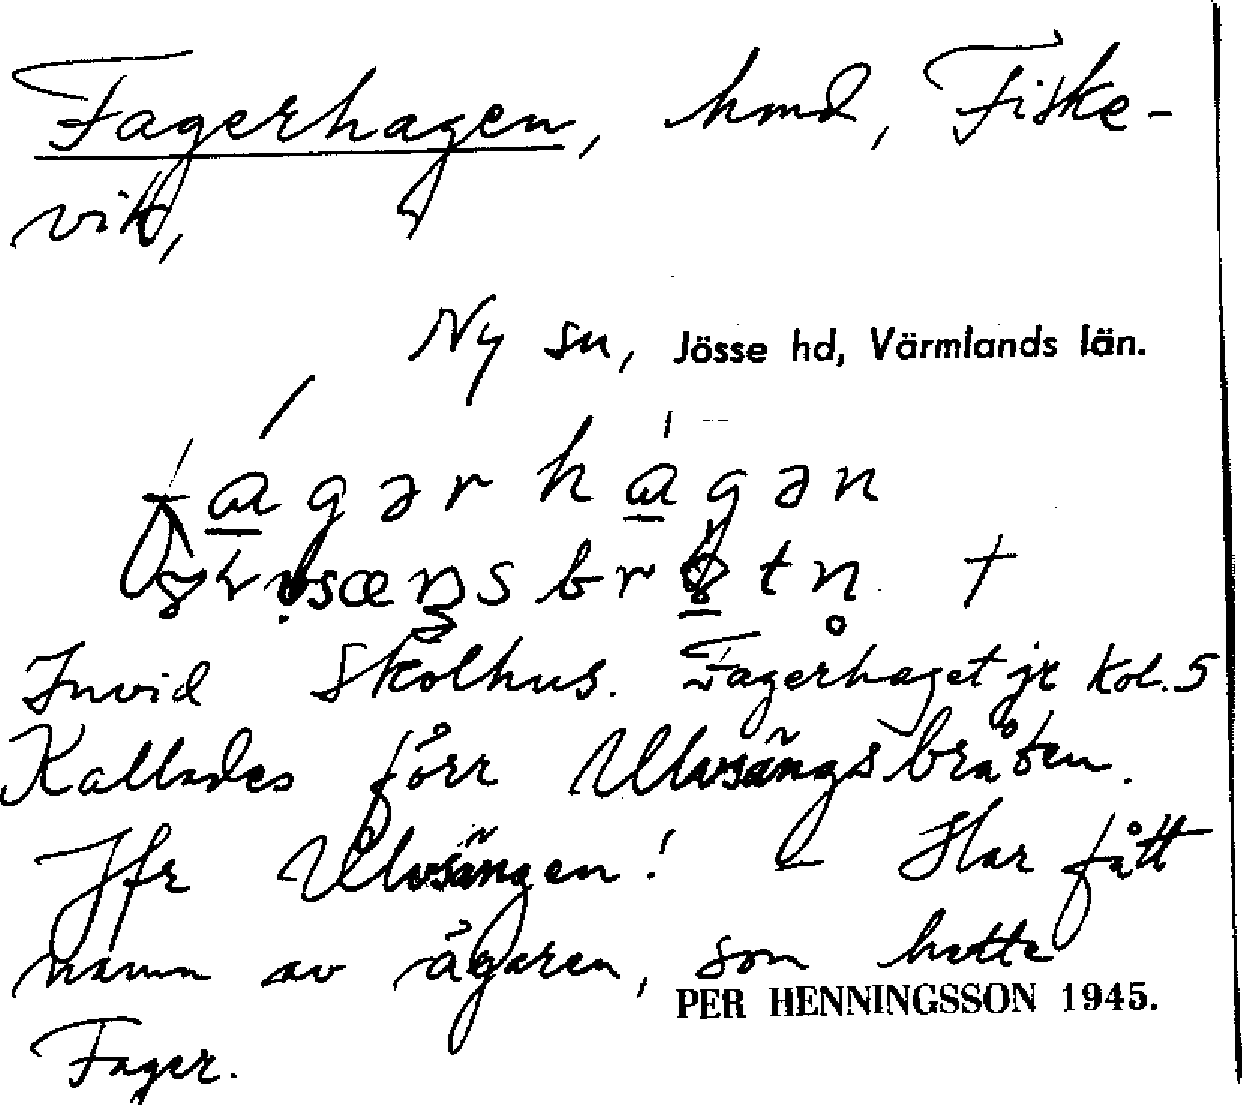 Fagerhagen, hmd, Fiske-
vik,
Ny sn, Jösse hd, Värmlands län.
fágər hágən
Invid Skolhus. Fagerhaget jr kol. 5
Kallades förr Ulvsängsbråten.
Jfr Ulvsängen! – Har fått
namn av ägaren, som hette
PER HENNINGSSON 1945.
Fager.